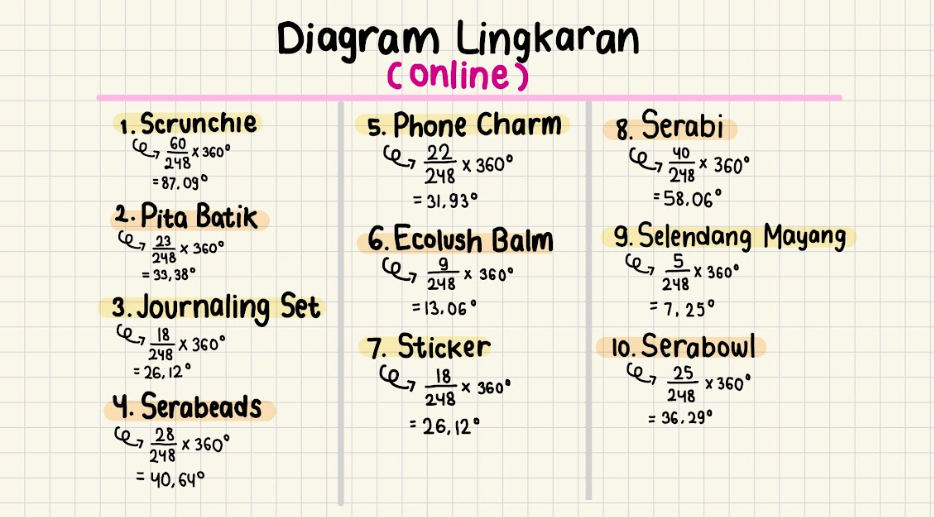 Diagram Lingkaran
(online)
1. Scrunchie
60/248 x 360°
= 87,09°
2. Pita Batik
23/248 x 360°
= 33,38°
3. Journaling Set
18/248 x 360°
= 26,12°
4. Serabeads
28/248 x 360°
= 40,64°
5. Phone Charm
22/248 x 360°
= 31,93°
6. Ecolush Balm
9/248 x 360°
= 13,06°
7. Sticker
18/248 x 360°
= 26,12°
8. Serabi
40/248 x 360°
= 58,06°
9. Selendang Mayang
5/248 x 360°
= 7,25°
10. Serabowl
25/248 x 360°
= 36,29°